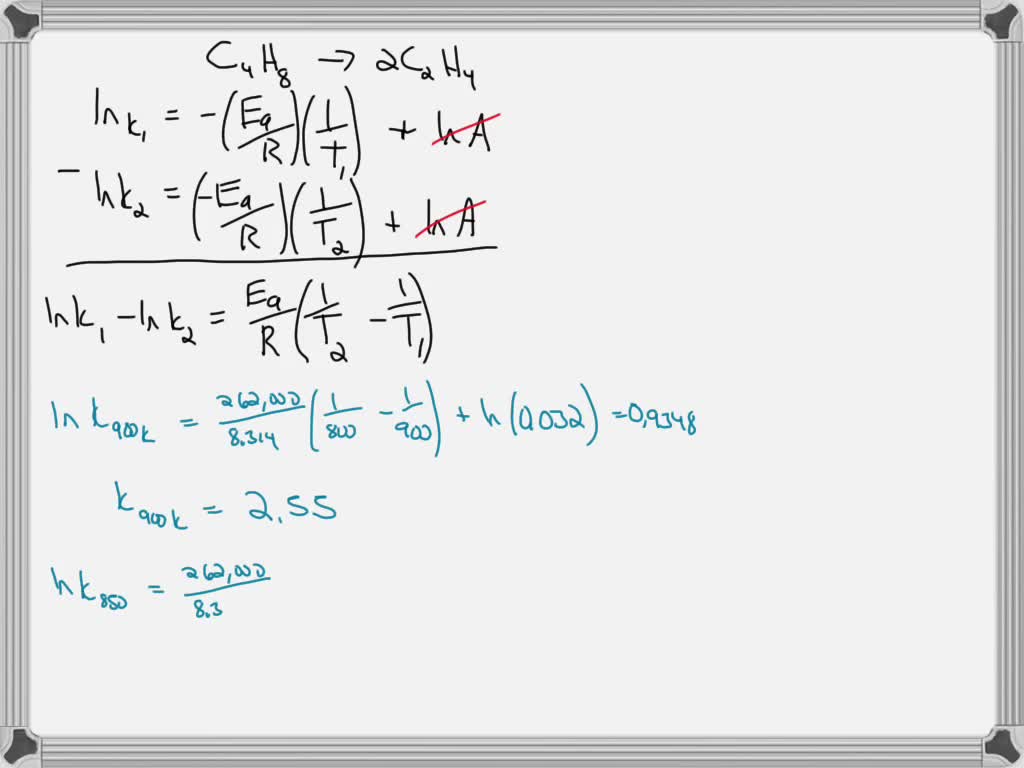 C₄H₈ → 2C₂H₄
ln k₁ = -(Ea/R)(1/T₁) + ln A
- ln k₂ = (-Ea/R)(1/T₂) + ln A
ln k₁ - ln k₂ = Ea/R (1/T₂ - 1/T₁)
ln k₉₀₀ₖ = 262,000/8.314 (1/800 - 1/900) + ln(0.032) = 0.9348
k₉₀₀ₖ = 2.55
ln k₈₅₀ = 262,000/8.3